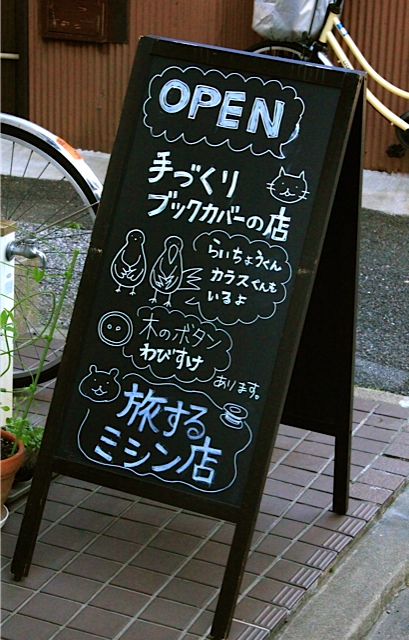 OPEN
手づくり
ブックカバーの店
らいちょうくん
カラスくんも
いるよ
木のボタン
わびすけ
あります。
旅する
ミシン店